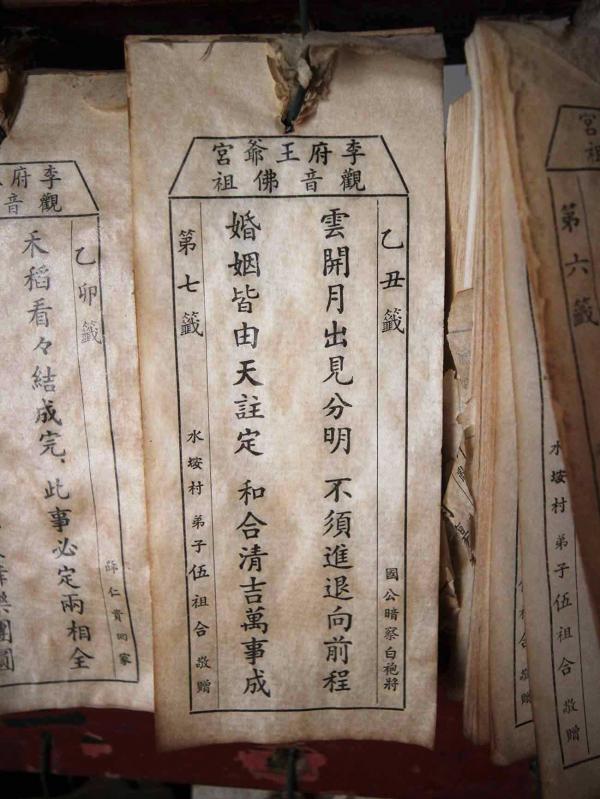 宮
祖
第六籤 水垵村 弟子伍祖合 敬贈
李府王爺宮
觀音佛祖
乙丑籤 國公暗察白袍將
雲開月出見分明 不須進退向前程
婚姻皆由天註定 和合清吉萬事成
第七籤 水垵村 弟子伍祖合 敬贈
李府
觀音
乙卯籤 薛仁貴回家
禾稻看々結成完、此事必定兩相全
團圓